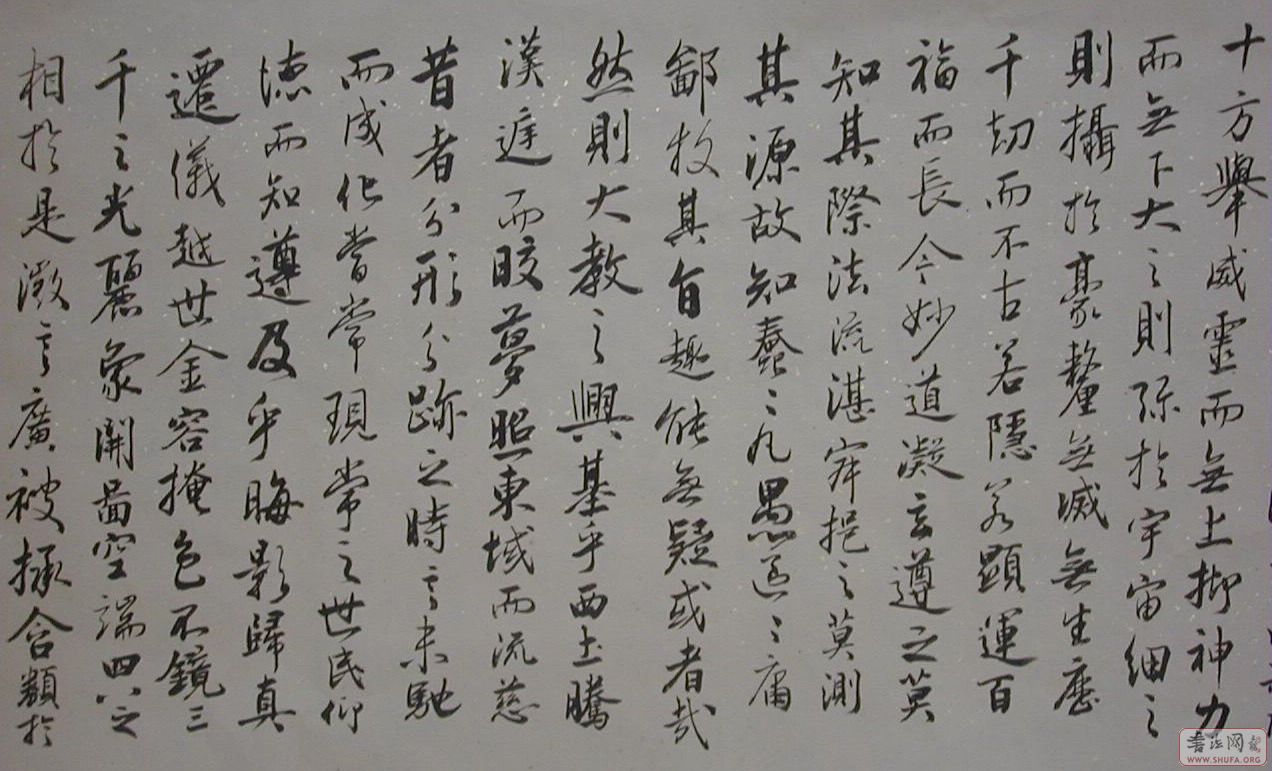 十方舉威靈而無上抑神力
而無下大之則弥於宇宙細之
則攝於豪釐無滅無生歷
千劫而不古若隱若顯運百
福而長今妙道凝玄遵之莫
知其際法流湛寂挹之莫測
其源故知蠢々凡愚區々庸
鄙投其旨趣能無疑或者哉
然則大教之興基乎西土騰
漢庭而皎夢照東域而流慈
昔者分形分跡之時言未馳
而成化當常現常之世民仰
德而知遵及乎晦影歸真
遷儀越世金容掩色不鏡三
千之光麗象開圖空端四八之
相於是微言廣被拯含類於
書法网
WWW.SHUFA.ORG